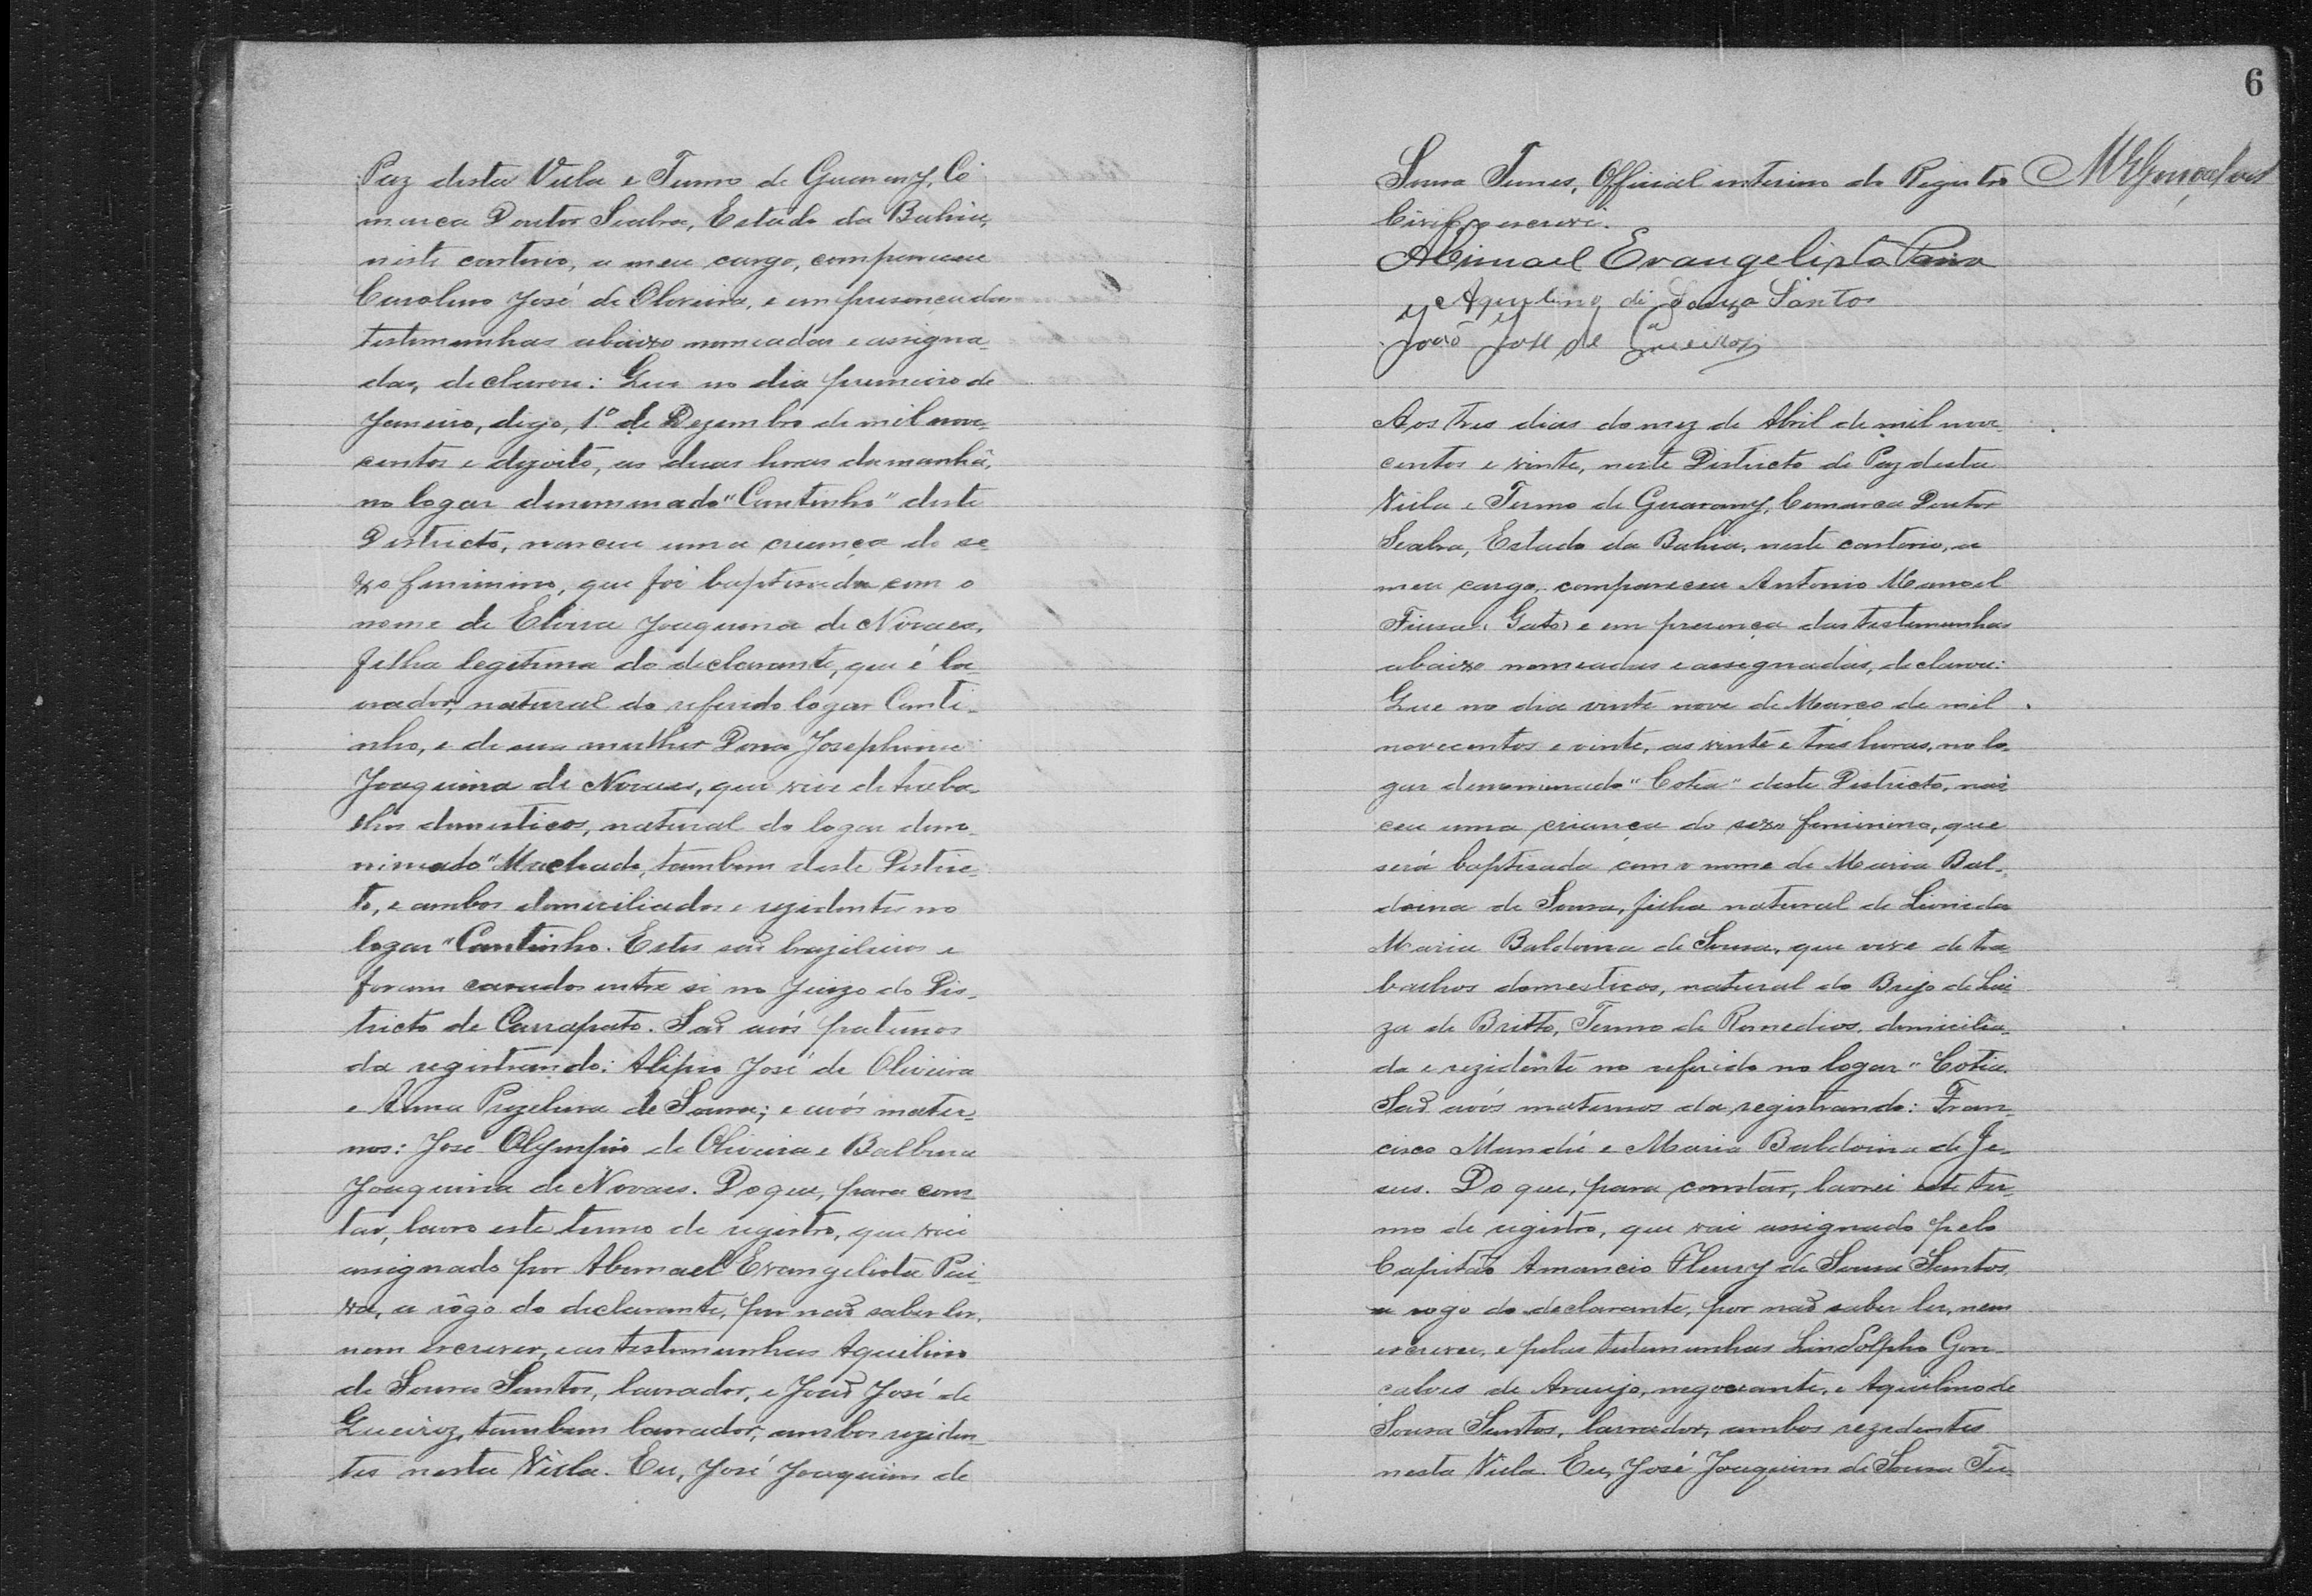 Paz desta Villa e Termo de Guarany, Co
marca Doutor Seabra, Estado da Bahia,
neste cartorio, a meu cargo, compareceu
Carolino José de Oliveira, e em presença das
testemunhas abaixo nomeadas e assigna-
das, declarou: Que no dia primeiro de
Janeiro, digo, 1º de Dezembro de mil nove-
centos e dezoito, as duas horas da manhã,
no logar denominado "Cantinho" deste
Districto, nasceu uma creança do se-
xo feminino, que foi baptisada com o
nome de Elvira Joaquina de Novaes,
filha legitima do declarante, que é la-
vrador, natural do referido logar Canti-
nho, e de sua mulher Dona Josephina
Joaquina de Novaes, que vive de traba-
lhos domesticos, natural do logar deno-
minado "Machado, tambem deste Distric-
to, e ambos domiciliados e rezidentes no
logar "Cantinho. Estes saõ brazileiros e
foram casados entre si no Juizo do Dis-
tricto de Carrapato. Saõ avós paternos
da registrando: Alipio José de Oliveira
e Anna de Sousa; e avós mater-
nos: José Olympio de Oliveira e Balbina
Joaquina de Novaes. Do que, para cons-
tar, lavro este termo de registro, que vai
assignado por Abimael Evangelista Pai-
va, a rôgo do declarante, por naõ saber ler,
nem escrever, e as testemunhas Aquilino
de Sousa Santos, lavrador, e Joaõ José de
Queiroz, tambem lavrador, ambos reziden-
tes nesta Villa. Eu, José Joaquim de
6
Sousa Tunes, Official interino do Registro
Civil, o escrevi.
Abimael Evangelista Paiva
Aquelino di Souza Santos
Joaõ José de Queiroz
Aos tres dias do mez de Abril de mil nove-
centos e vinte, neste Districto de Paz desta
Villa e Termo de Guarany, Comarca Doutor
Seabra, Estado da Bahia, neste cartorio, a
meu cargo, compareceu Antonio Manoel
Fiusa (Gato) e em presença das testemunhas
abaixo nomeadas e assignadas, declarou:
Que no dia vinte nove de Março de mil
novecentos e vinte, as vinte e tres horas, no lo-
gar denominado "Cotia" deste Districto, nas-
ceu uma criança do sexo feminino, que
será baptisada com o nome de Maria Bal-
doina de Sousa, filha natural de
Maria Baldoina de Sousa, que vive de tra-
balhos domesticos, natural do Brejo de Lui-
za de Britto, Termo de Remedios, domicilia-
da e rezidente no referido no logar "Cotia.
Saõ avós maternos da registrando: Fran-
cisco e Maria Baldoina de Je-
sus. Do que, para constar, lavrei este ter-
mo de registro, que vai assignado pelo
Capitaõ Amancio Fleury de Sousa Santos,
a rogo do declarante, por naõ saber ler, nem
escrever, e pelas testemunhas Lindolpho Gon-
çalves de Araujo, negociante, e Aquilino de
Sousa Santos, lavrador, ambos rezedentes
nesta Villa. Eu, José Joaquim de Sousa Tu-